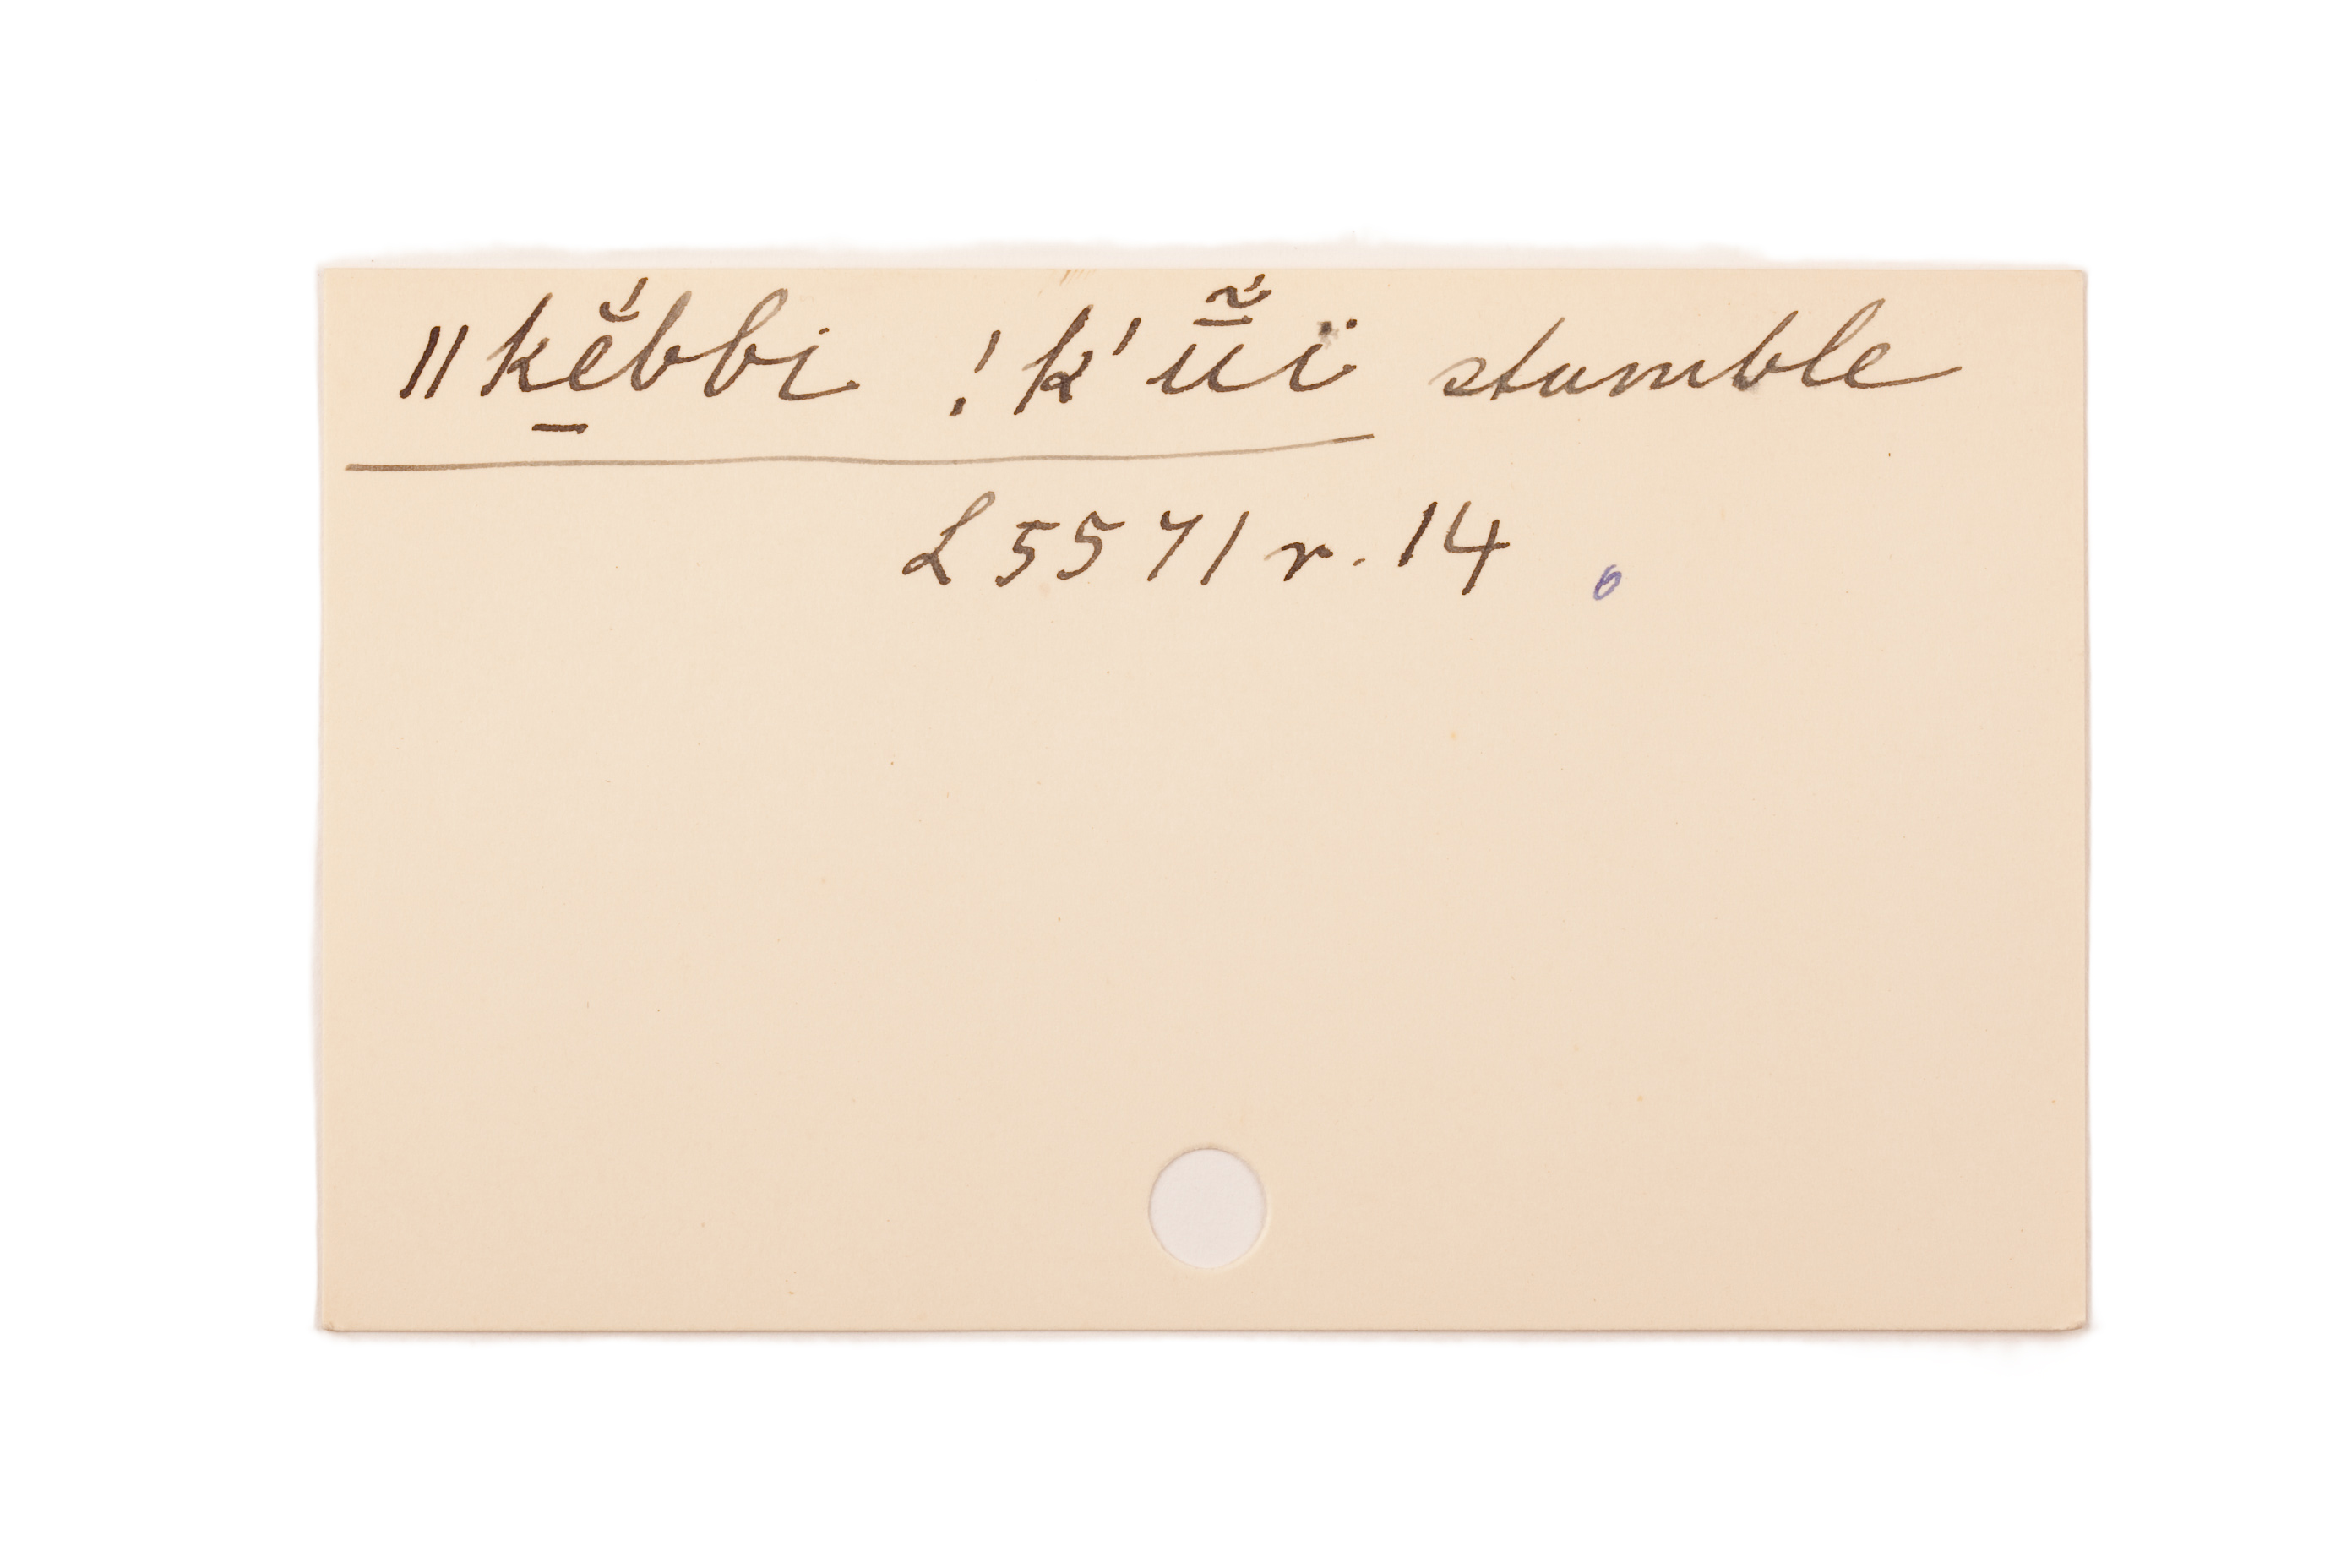 ǁkĕ̱́bbi !k'ū̃́ï stumble
L 5571 r. 14 6